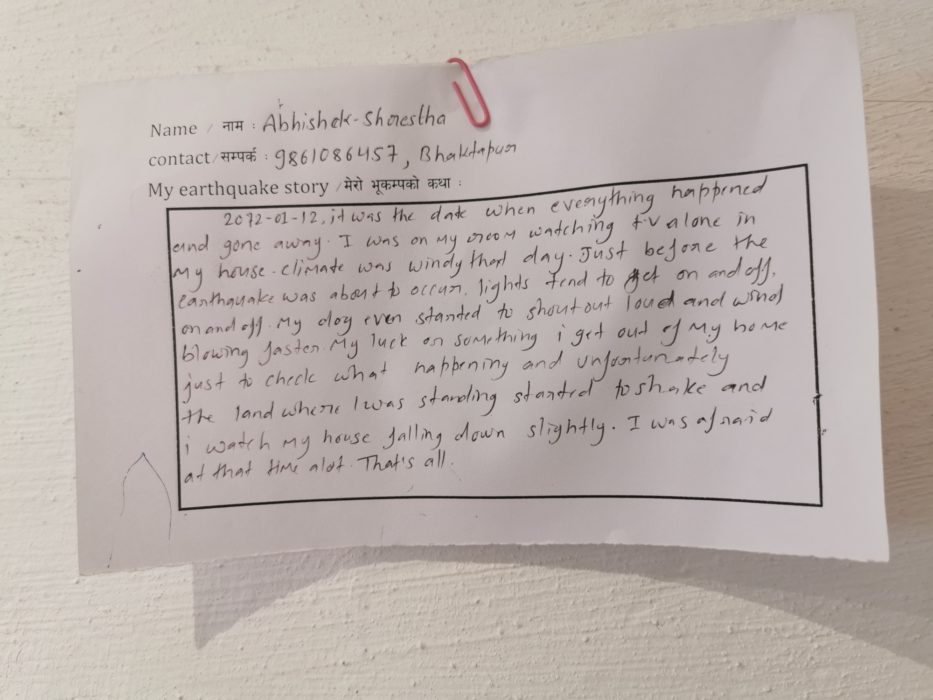 Name / नाम : Abhishek-Shrestha
contact/सम्पर्क : 9861086457, Bhaktapur
My earthquake story /मेरो भूकम्पको कथा :
2072-01-12, it was the date when everything happened
and gone away. I was on my room watching t.v alone in
my house. climate was windy that day. Just before the
earthquake was about to occur, lights tend to get on and off,
on and off. My dog even started to shout out loud and wind
blowing faster. My luck or something i get out of my home
just to check what happening and unfortunately
the land where I was standing started to shake and
i watch my house falling down slightly. I was afraid
at that time alot. That's all.